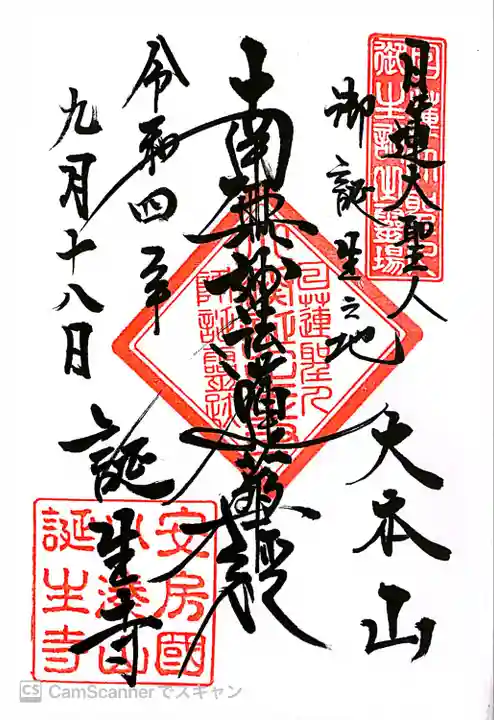 日蓮大聖人
御誕生之地
大本山
南無妙法蓮華経
令和四年
九月十八日
誕生寺
日蓮聖人
安房國
小湊山
誕生寺
CS CamScannerでスキャン